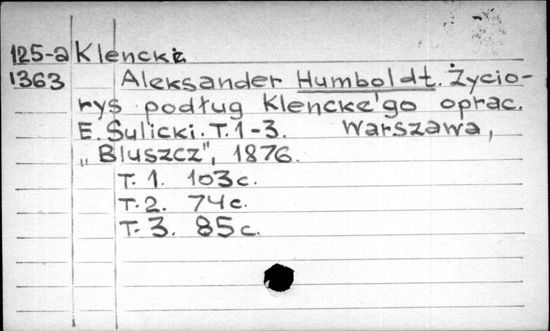 125-a Klencke
1363 Aleksander Humboldt. Życio-
rys podług Klencke'go oprac.
E. Sulicki. T. 1-3. Warszawa,
„Bluszcz", 1876.
T. 1. 103c.
T. 2. 74c.
T. 3. 85c.